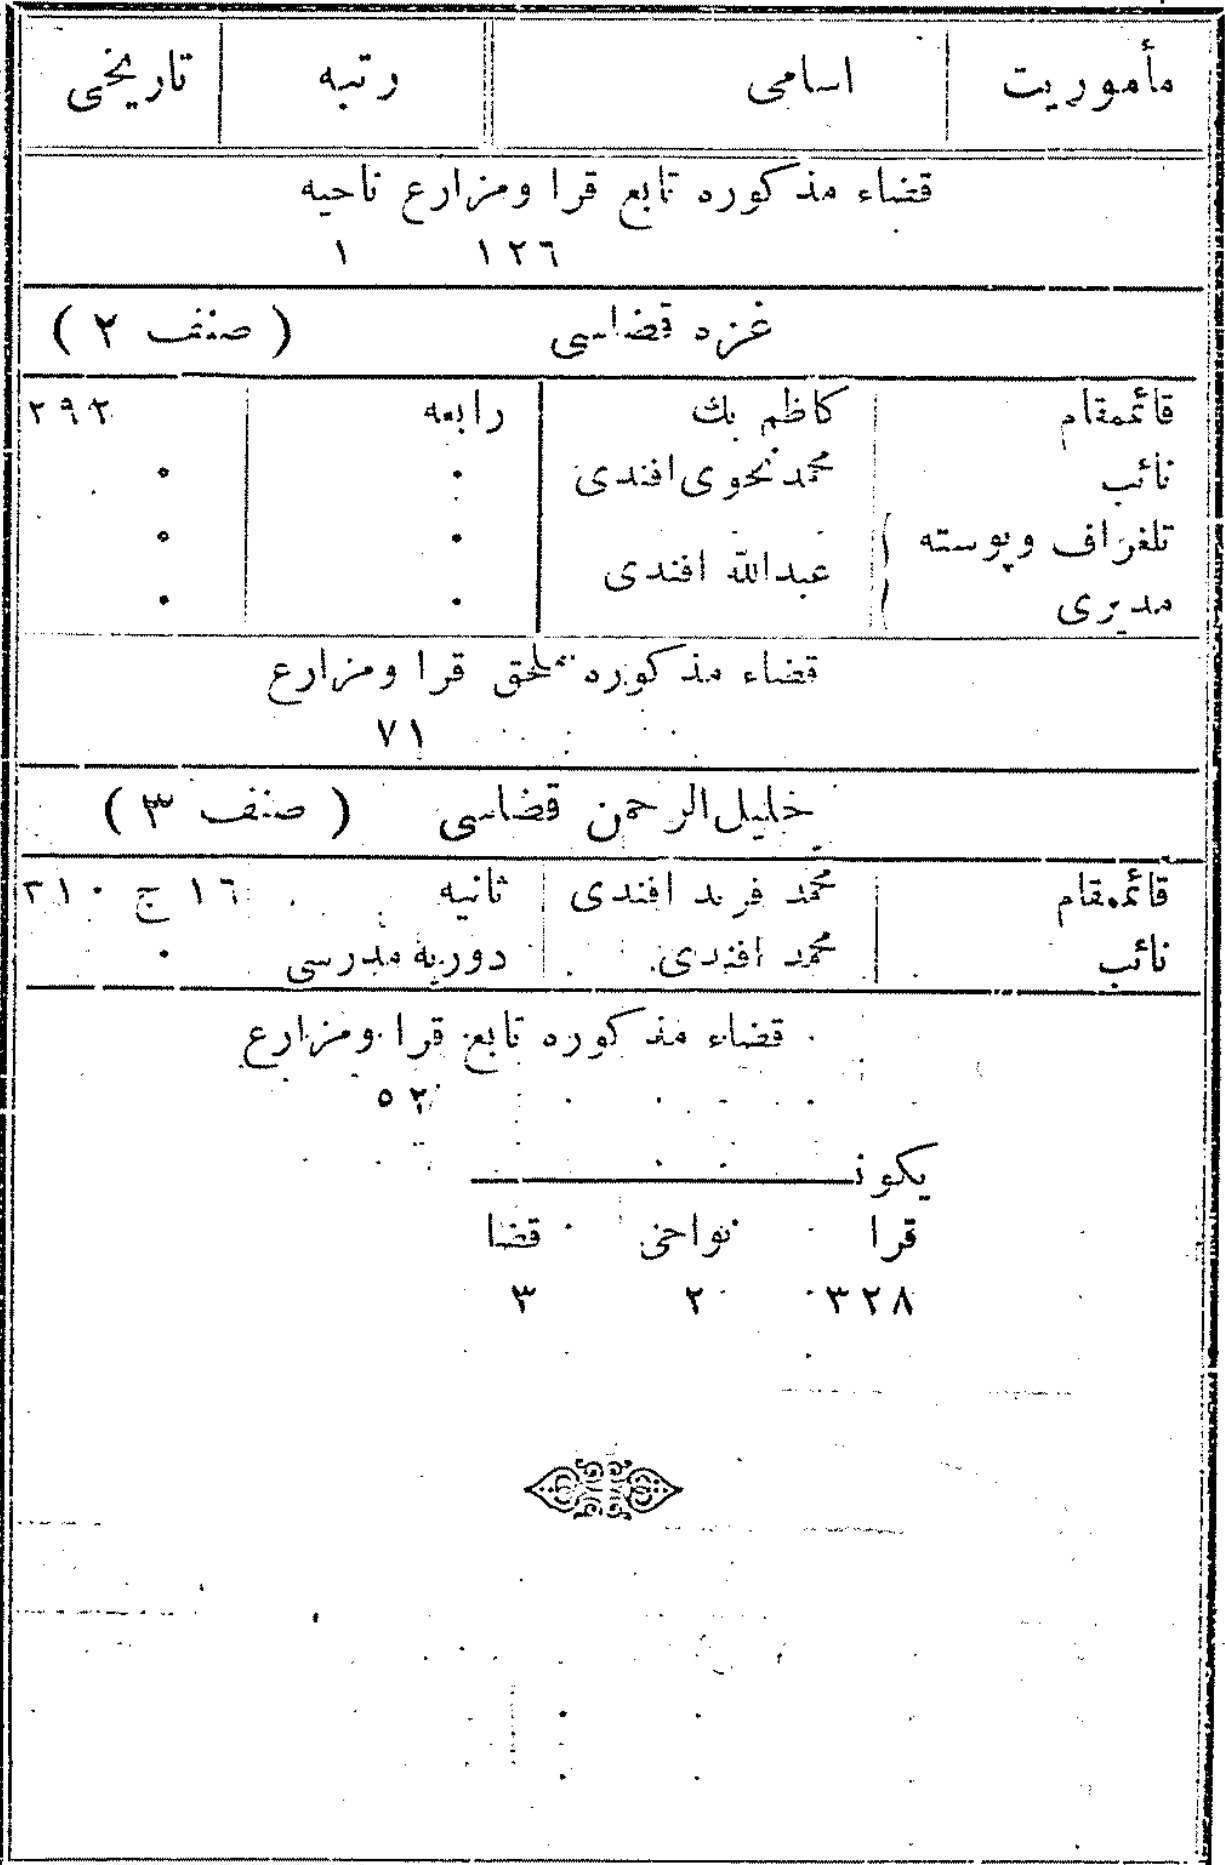 مأموريت اسامی رتبه تاريخی
قضاء مذکوره تابع قرا ومزارع ناحيه
١٢٦ ١
غزه قضاسی ( صنف ٢ )
قائممقام کاظم بك رابعه ٢٩٢
نائب محمدنحوی افندی · ·
تلغراف وپوسته مديری عبدالله افندی · ·
قضاء مذکوره ملحق قرا ومزارع
٧١
خليل الرحمن قضاسی ( صنف ٣ )
قائممقام محمد فريد افندی ثانيه ١٦ ج ٣١٠
نائب محمد افندی دوريه مدرسی ·
قضاء مذکوره تابع قرا ومزارع
٥٢
يکون
قرا نواحی قضا
٣٢٨ ٢ ٣